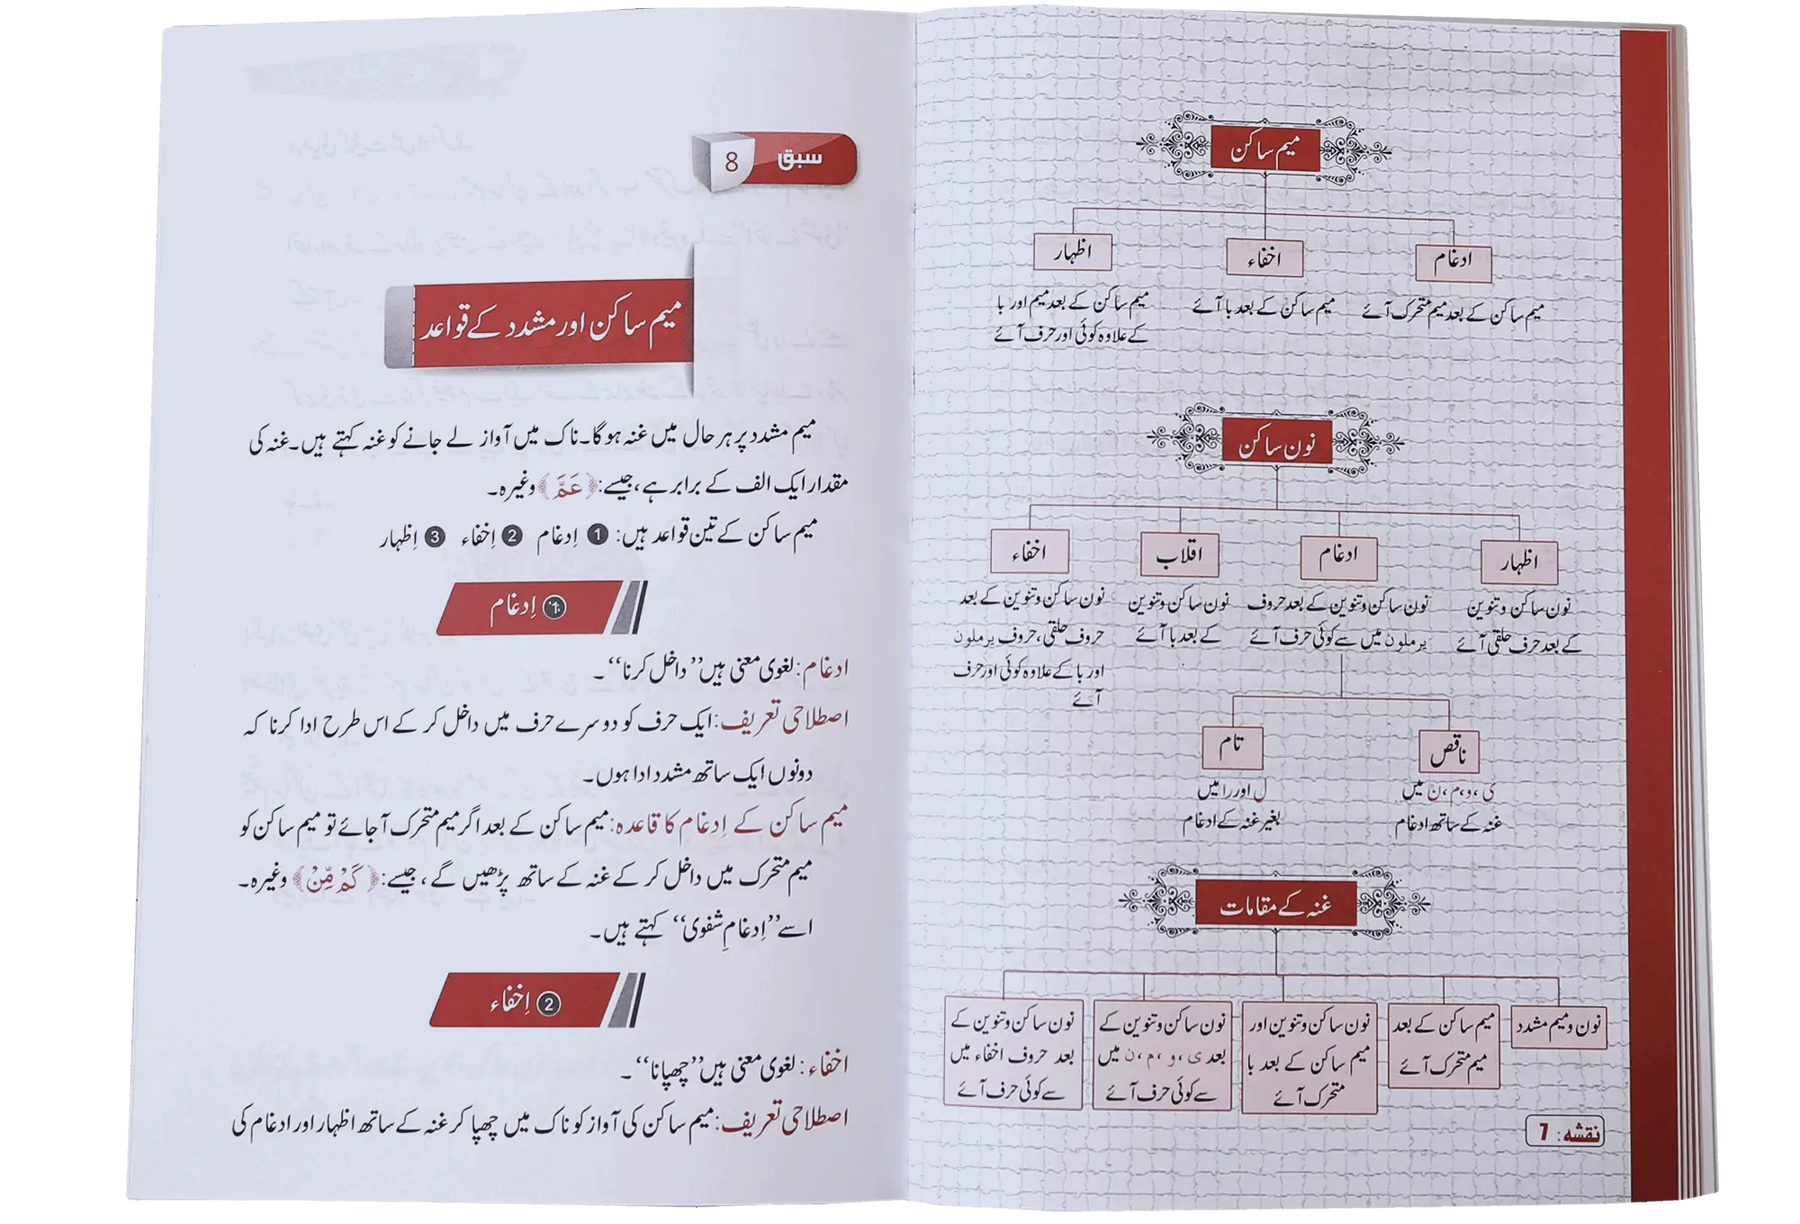 میم ساکن
ادغام
اخفاء
اظہار
میم ساکن کے بعد میم متحرک آئے
میم ساکن کے بعد با آئے
میم ساکن کے بعد میم اور با
کے علاوہ کوئی اور حرف آئے
نون ساکن
اظہار
ادغام
اقلاب
اخفاء
نون ساکن و تنوین
کے بعد حرف حلقی آئے
نون ساکن و تنوین کے بعد حروف
یرملون میں سے کوئی حرف آئے
نون ساکن و تنوین
کے بعد با آئے
نون ساکن و تنوین کے بعد
حروف حلقی، حروف یرملون
اور با کے علاوہ کوئی اور حرف
آئے
ناقص
تام
ی، و، م، ن میں
غنہ کے ساتھ ادغام
ل اور را میں
بغیر غنہ کے ادغام
غنہ کے مقامات
نون و میم مشدد
میم ساکن کے بعد
میم متحرک آئے
نون ساکن و تنوین اور
میم ساکن کے بعد با
متحرک آئے
نون ساکن و تنوین کے
بعد ی، و، م، ن میں
سے کوئی حرف آئے
نون ساکن و تنوین کے
بعد حروف اخفاء میں
سے کوئی حرف آئے
نقشہ: 7
سبق 8
میم ساکن اور مشدد کے قواعد
میم مشدد پر ہر حال میں غنہ ہو گا۔ ناک میں آواز لے جانے کو غنہ کہتے ہیں۔ غنہ کی
مقدار ایک الف کے برابر ہے، جیسے: ﴿عَمَّ﴾ وغیرہ۔
میم ساکن کے تین قواعد ہیں: ❶ اِدغام ❷ اِخفاء ❸ اِظہار
❶ اِدغام
ادغام: لغوی معنی ہیں ”داخل کرنا“۔
اصطلاحی تعریف: ایک حرف کو دوسرے حرف میں داخل کر کے اس طرح ادا کرنا کہ
دونوں ایک ساتھ مشدد ادا ہوں۔
میم ساکن کے اِدغام کا قاعدہ: میم ساکن کے بعد اگر میم متحرک آ جائے تو میم ساکن کو
میم متحرک میں داخل کر کے غنہ کے ساتھ پڑھیں گے، جیسے: ﴿كَمْ مِّنْ﴾ وغیرہ۔
اسے ”اِدغامِ شفوی“ کہتے ہیں۔
❷ اِخفاء
اخفاء: لغوی معنی ہیں ”چھپانا“۔
اصطلاحی تعریف: میم ساکن کی آواز کو ناک میں چھپا کر غنہ کے ساتھ اظہار اور ادغام کی